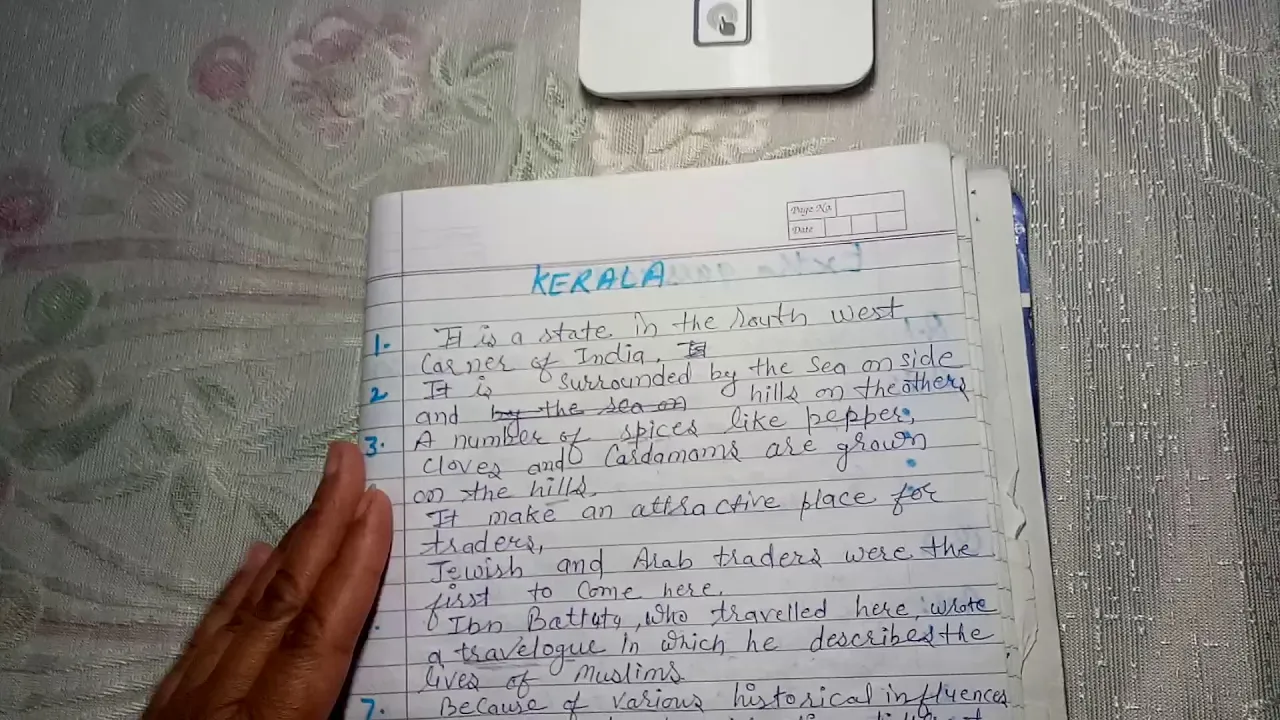 Page No.
Date
KERALA
1. It is a state in the south west
Corner of India.
2 It is surrounded by the sea on side
and by the sea on hills on the others
3. A number of spices like pepper,
cloves and Cardamoms are grown
on the hills.
It make an attractive place for
traders,
Jewish and Arab traders were the
first to come here.
Ibn Battuta, who travelled here, wrote
a travelogue in which he describes the
lives of Muslims
7. Because of various historical influences